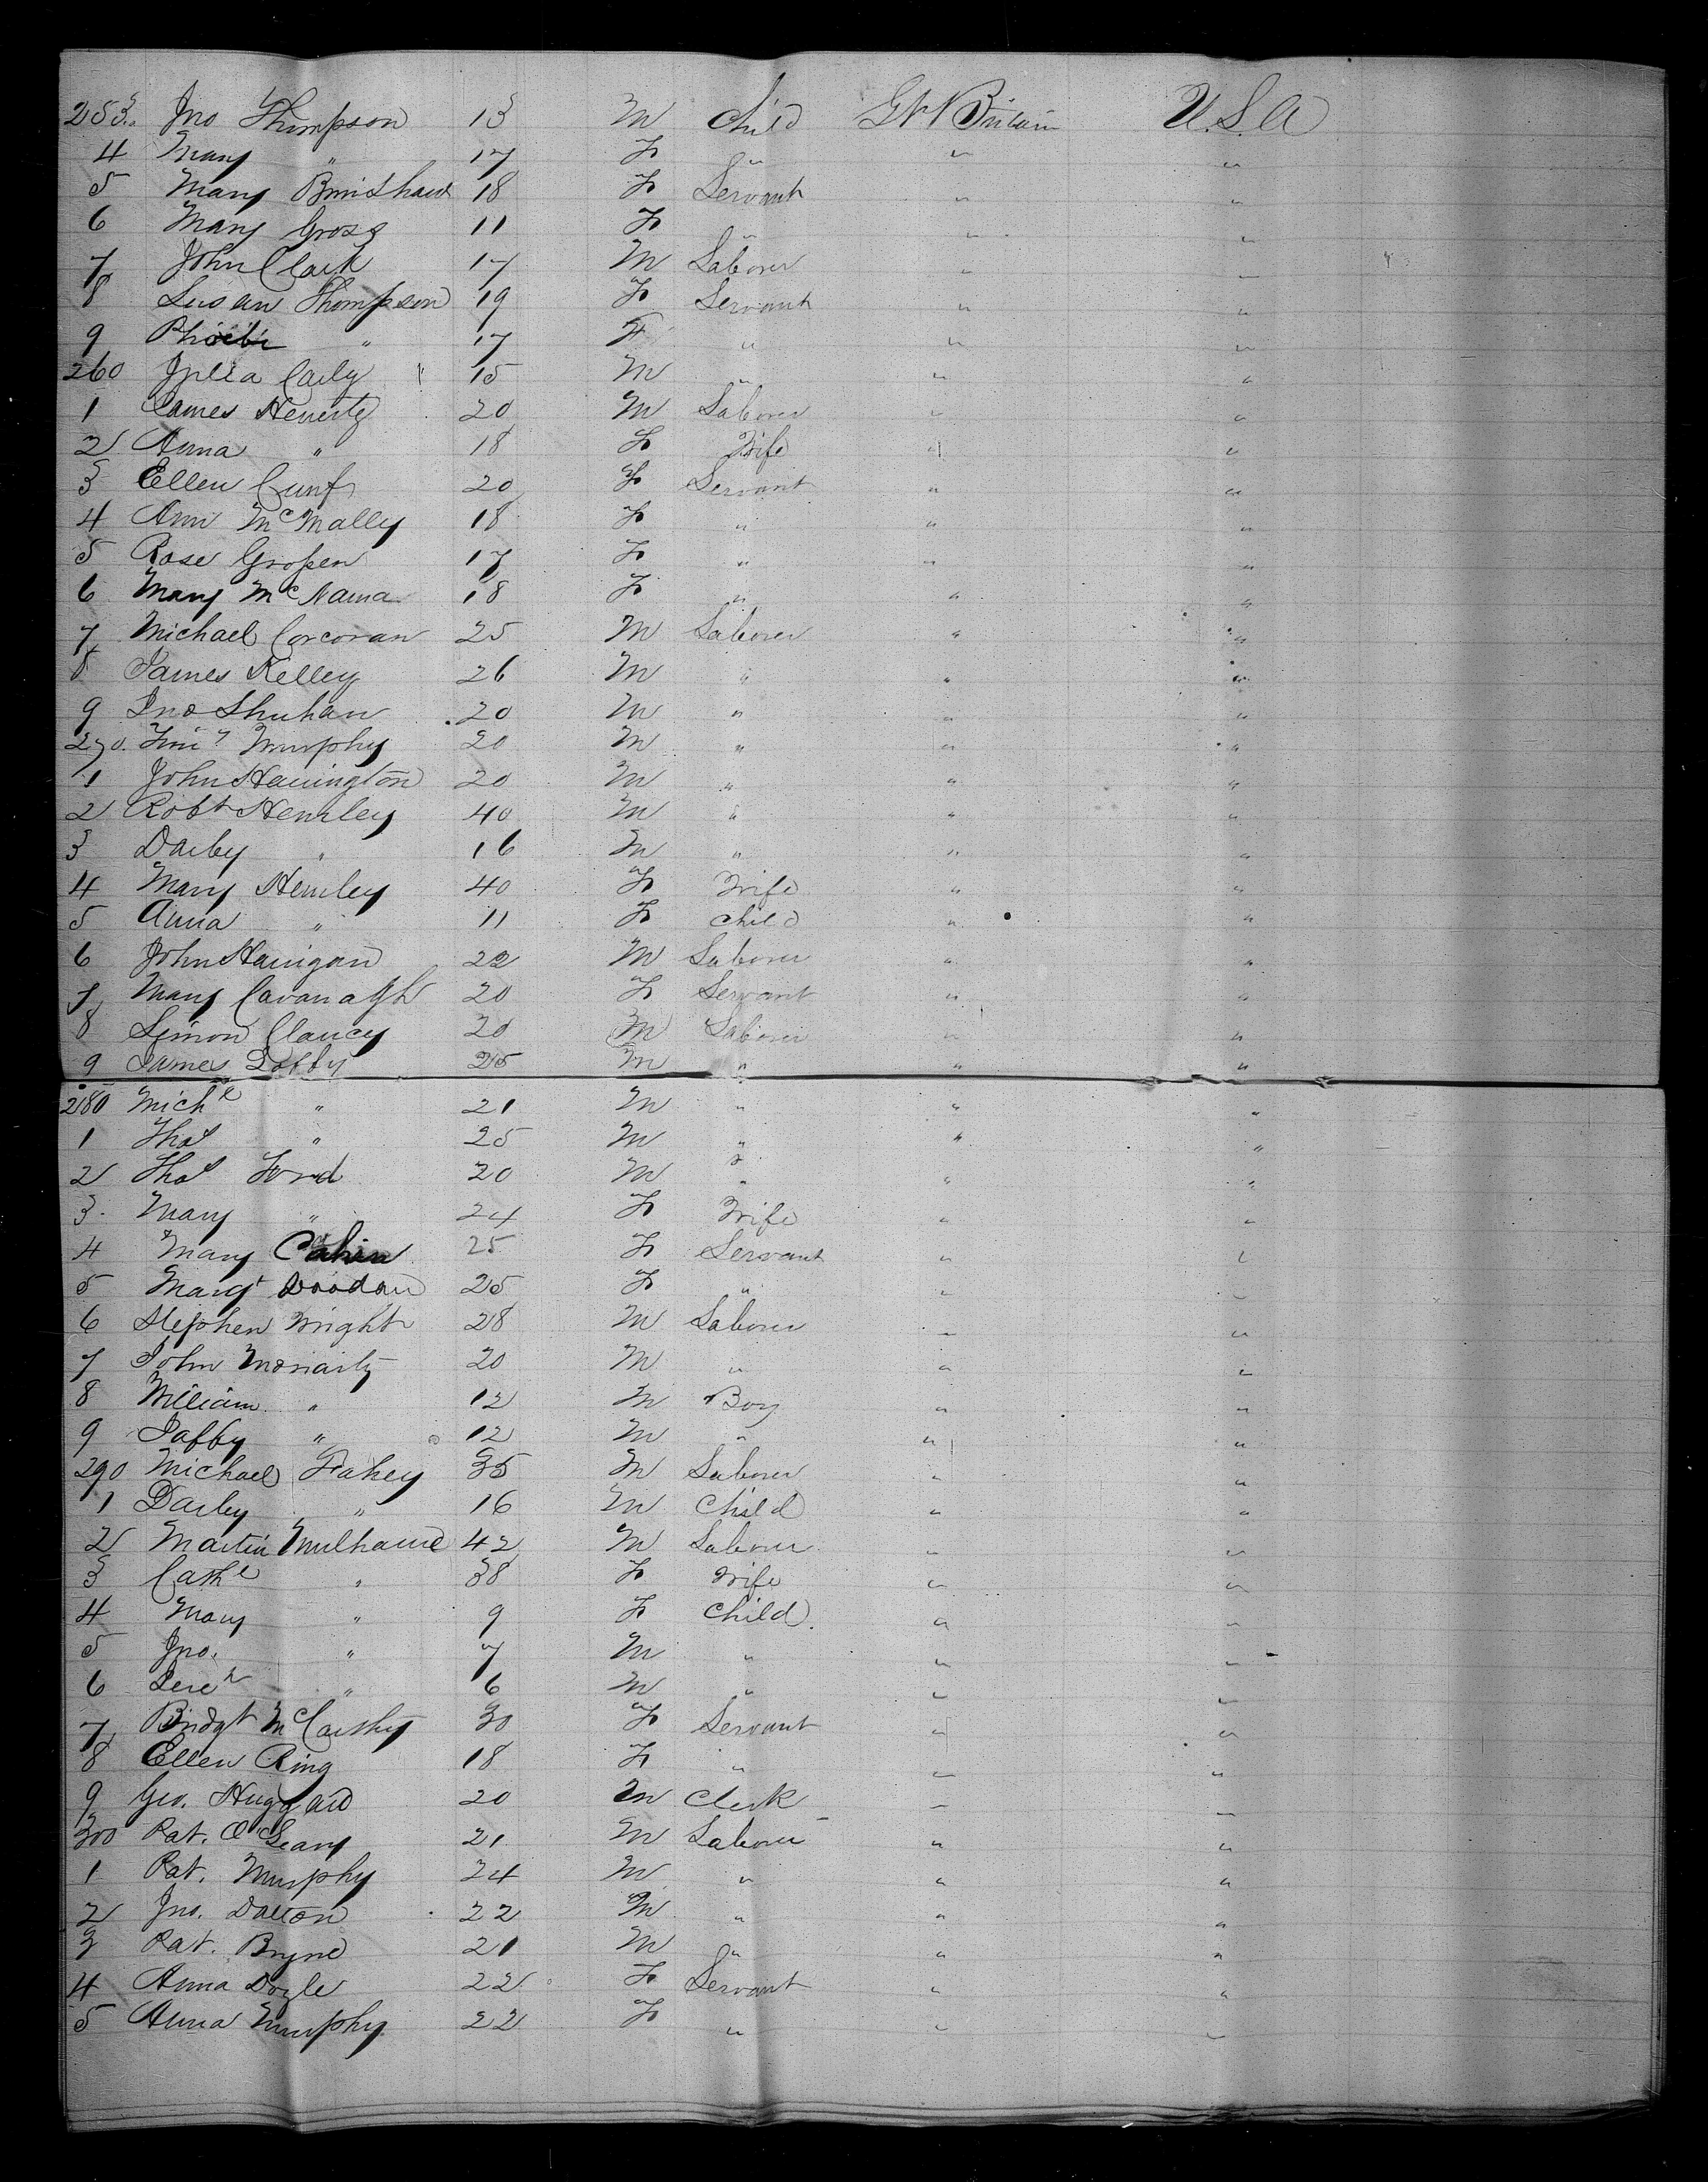 253. Jno Thompson 13 M Child Gt Britain U.S.A
4 Mary " 17 F " " "
5 Mary 18 F Servant " "
6 Mary Gross 11 F " " "
7 John Clark 17 M Laborer " "
8 Susan Thompson 19 F Servant " "
9 Phoebe " 17 F " " "
260 Julia 15 M " " "
1 James 20 M Laborer " "
2 Anna " 18 F Wife " "
3 Ellen 20 F Servant " "
4 Ann 18 F " " "
5 Rose 17 F " " "
6 Mary McNama 18 F " " "
7 Michael Corcoran 25 M Laborer " "
8 James Kelley 26 M " " "
9 Jno Shuhan 20 M " " "
270. Timy Murphy 20 M " " "
1 John Harrington 20 M " " "
2 Robt Hemley 40 M " " "
3 Darby " 16 M " " "
4 Mary Hemley 40 F Wife " "
5 Anna " 11 F Child " "
6 John Hanigan 22 M Laborer " "
7 Mary Cavanagh 20 F Servant " "
8 Simon Clancy 20 M Laborer " "
9 James 25 M " " "
280 Michl " 21 M " " "
1 Thos " 25 M " " "
2 Thos Ford 20 M " " "
3 Mary " 24 F Wife " "
4 Mary 25 F Servant " "
5 Margt 25 F " " "
6 Stephen Wright 28 M Laborer " "
7 John Moriarty 20 M " " "
8 William " 12 M Boy " "
9 " 12 M " " "
290 Michael Fahey 35 M Laborer " "
1 Darby " 16 M Child " "
2 Martin 42 M Laborer " "
3 Cathe " 38 F Wife " "
4 Mary " 9 F Child " "
5 Jno. " 7 M " " "
6 " 6 M " " "
7 Bridgt McCarthy 30 F Servant " "
8 Ellen Ring 18 F " " "
9 Geo. Huggard 20 M Clerk " "
300 Pat. O'Leary 21 M Laborer " "
1 Pat. Murphy 24 M " " "
2 Jno. Dalton 22 M " " "
3 Pat. Bryne 21 M " " "
4 Anna Doyle 22 F Servant " "
5 Anna Murphy 22 F " " "